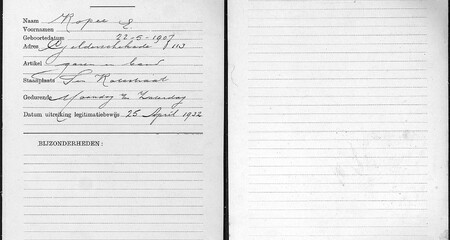 Naam Kopee E.
Voornamen
Geboortedatum 22-5-1907
Adres Gelderschekade 113
Artikel garen en band
Standplaats Ten Katestraat
Gedurende Maandag t/m Zaterdag
Datum uitreiking legitimatiebewijs 25 April 1932
BIJZONDERHEDEN: